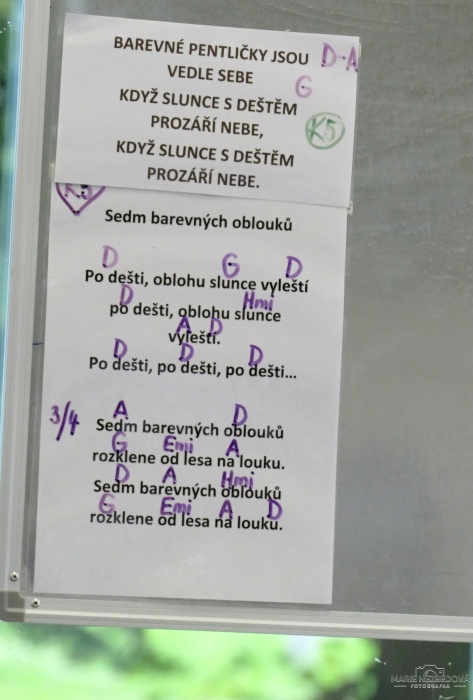 BAREVNÉ PENTLIČKY JSOU D-A
VEDLE SEBE
G
KDYŽ SLUNCE S DEŠTĚM
PROZÁŘÍ NEBE, K5
KDYŽ SLUNCE S DEŠTĚM
PROZÁŘÍ NEBE.
Sedm barevných oblouků
D G D
Po dešti, oblohu slunce vyleští
D Hmi
po dešti, oblohu slunce
A D
vyleští.
D D D
Po dešti, po dešti, po dešti...
3/4 A D
Sedm barevných oblouků
G Emi A
rozklene od lesa na louku.
D A Hmi
Sedm barevných oblouků
G Emi A D
rozklene od lesa na louku.
MARIE NEZBEDOVÁ
FOTOGRAFKA